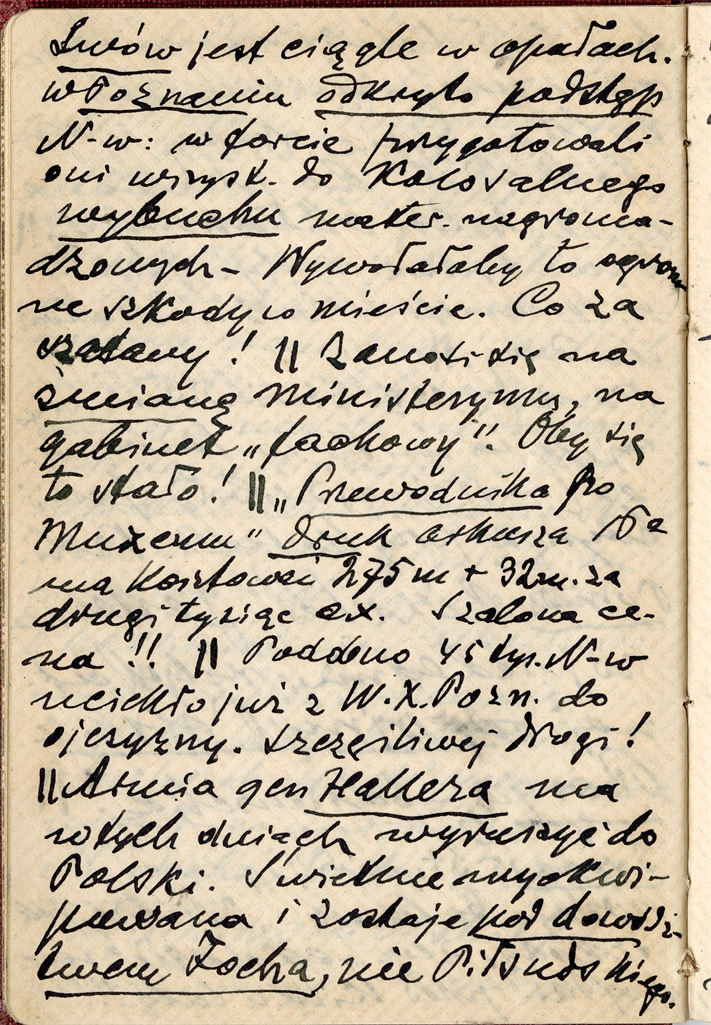 Lwów jest ciągle w opałach.
w Poznaniu odkryto podstęp
N-w: w forcie przygotowali
oni wszyst. do kolosalnego
wybuchu mater. nagroma-
dzonych - Wywołałaby to ogrom
ne szkody w mieście. Co za
szatany! || Zanosi się na
zmianę ministerymu, na
gabinet „fachowy". Oby się
to stało! || „Przewodnika po
Muzeum" druk arkusza
na kosztować 275 m + 32 m. za
drugi tysiąc ex. Szalona ce-
na!! || Podobno 45 tys. N-w
uciekło już z W.X.Pozn. do
ojczyzny. Szczęśliwej drogi!
|| Armia gen Hallera ma
w tych dniach wyruszyć do
Polski. Świetnie wyekwi-
powana i zostaje pod dowódz-
twem Focha, nie Piłsudskiego.